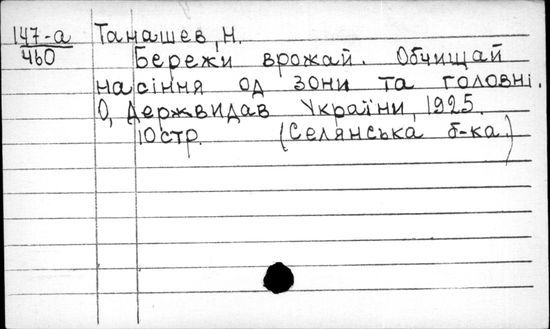 147-а Танашев, Н.
460 Бережи врожай. Обчищай
насіння од зони та головні.
О, Державидав України, 1925.
10стр. (Селянська б-ка.)